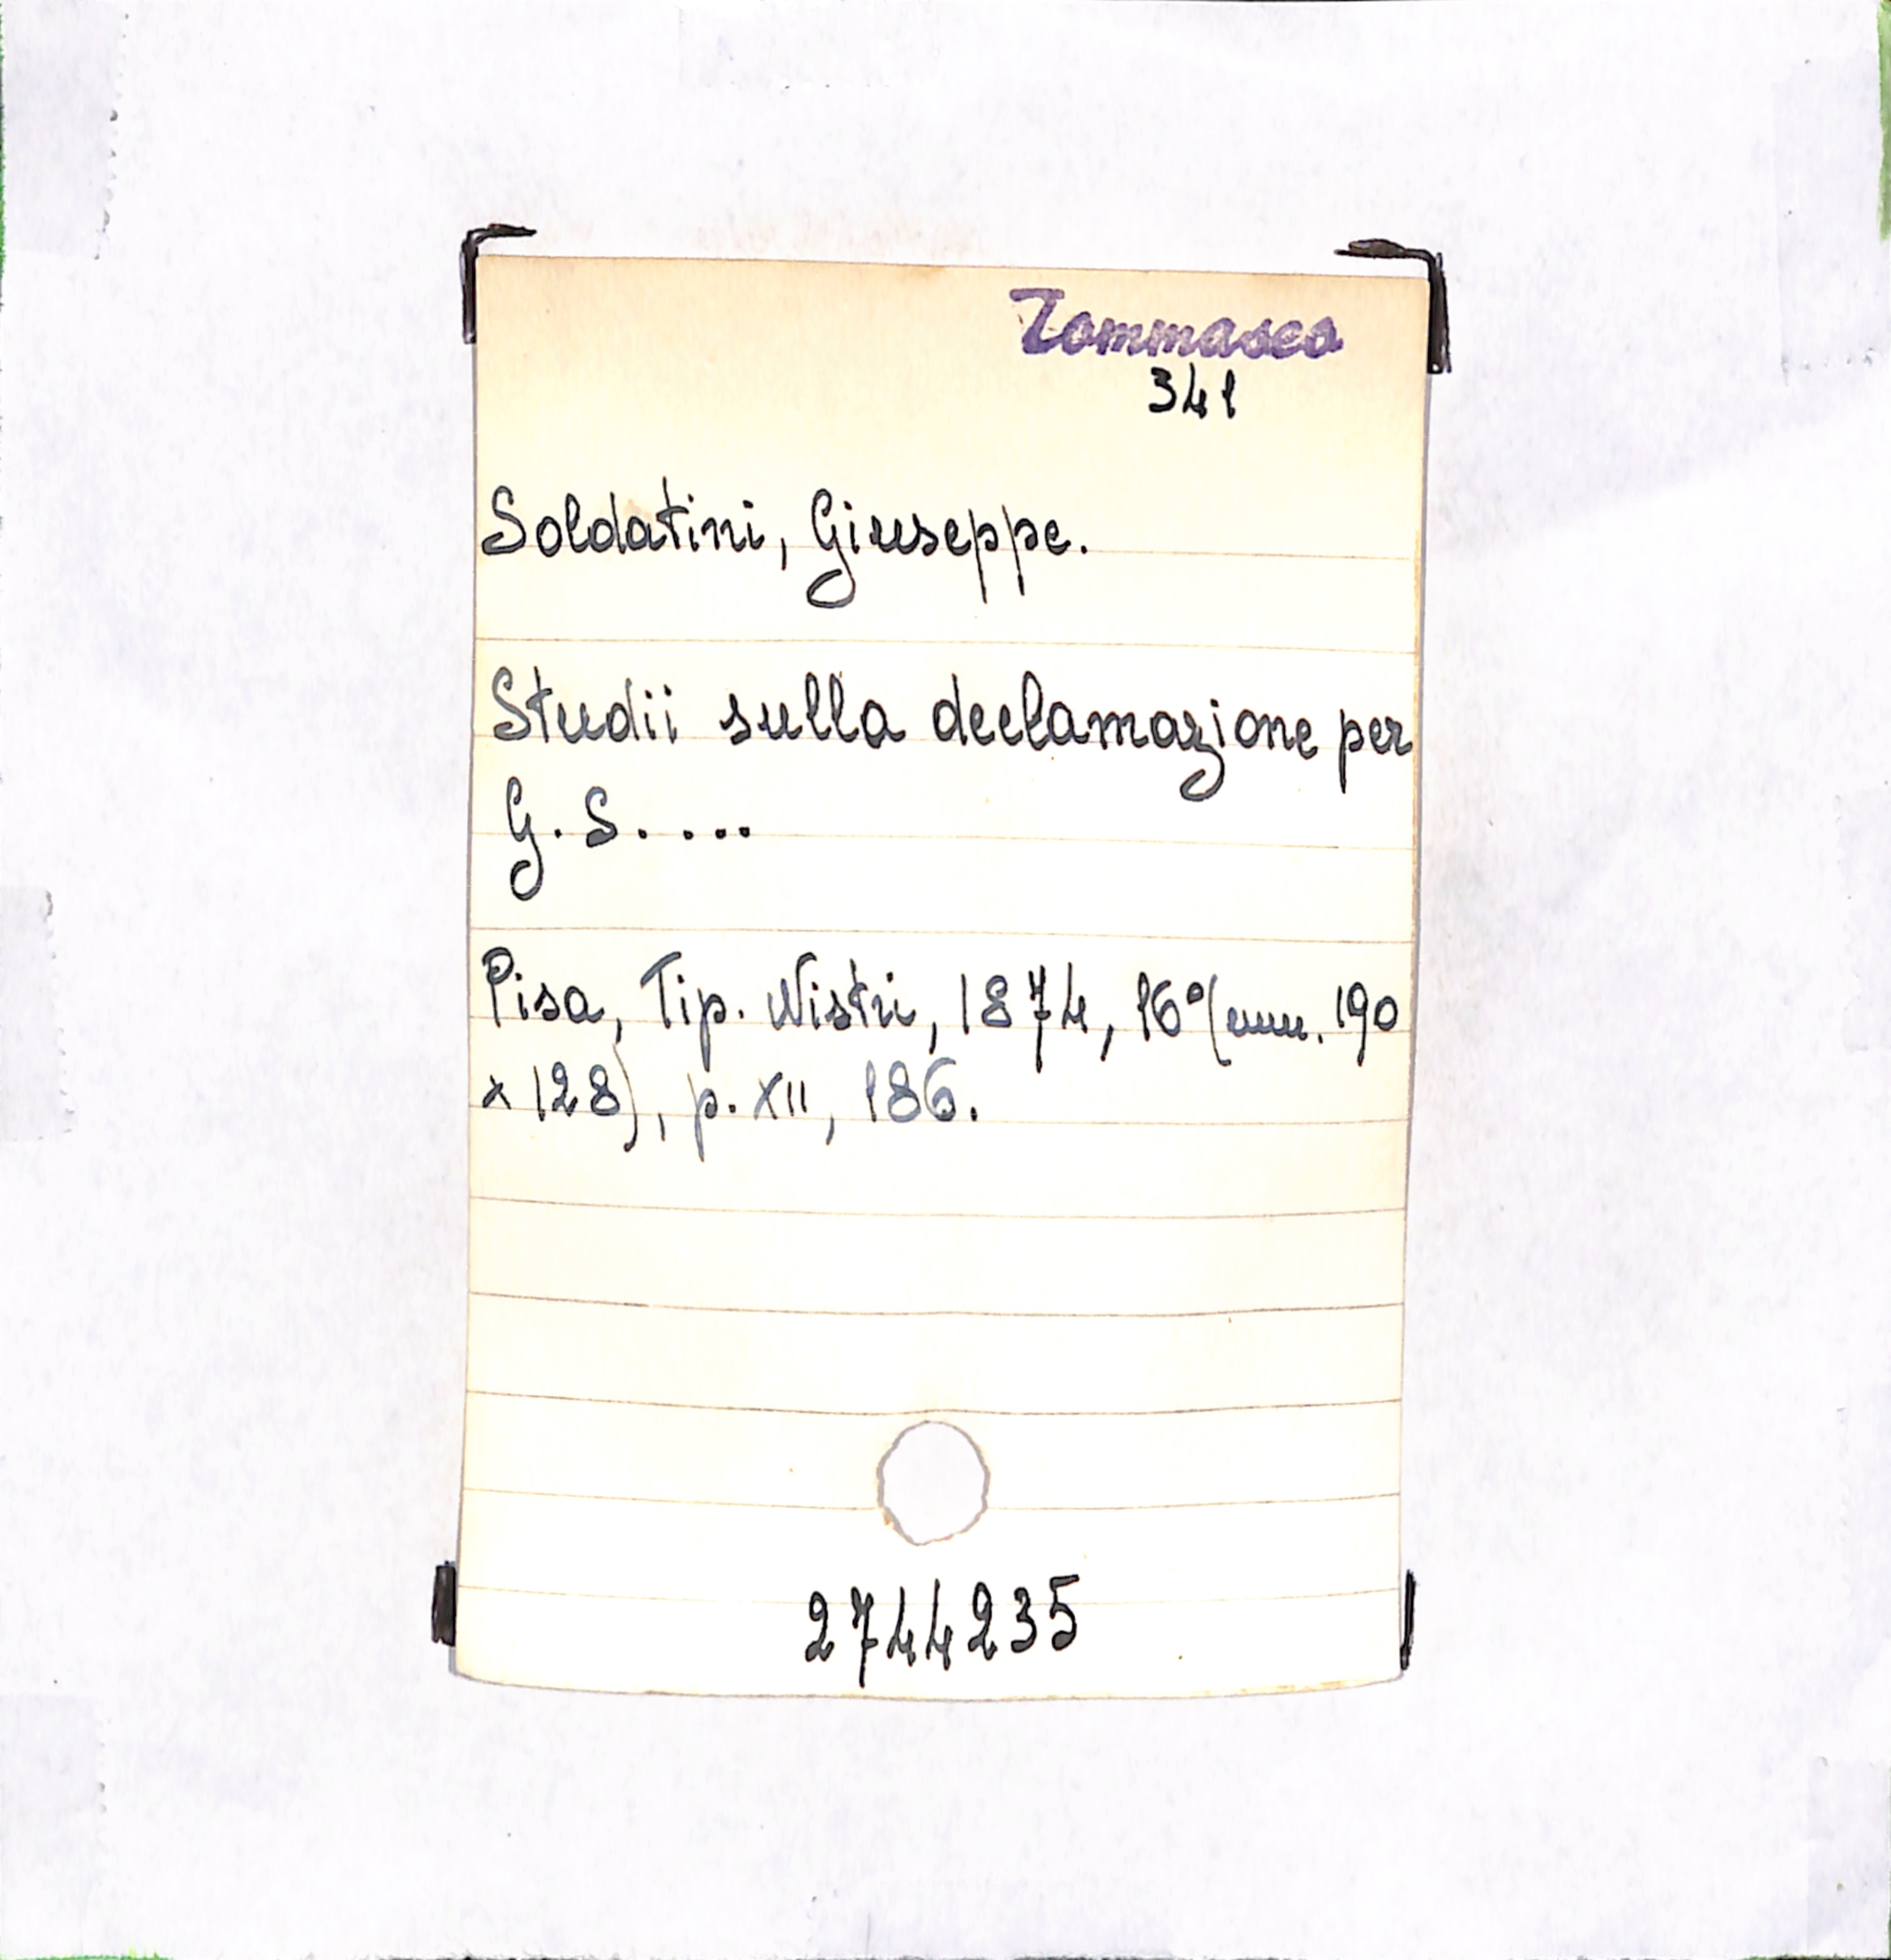 Tommaseo
341
Soldatini, Giuseppe.
Studii sulla declamazione per
G. S. ....
Pisa, Tip. Nistri, 1874, 16° (mm. 190
x 128), p. XII, 186.
2744235